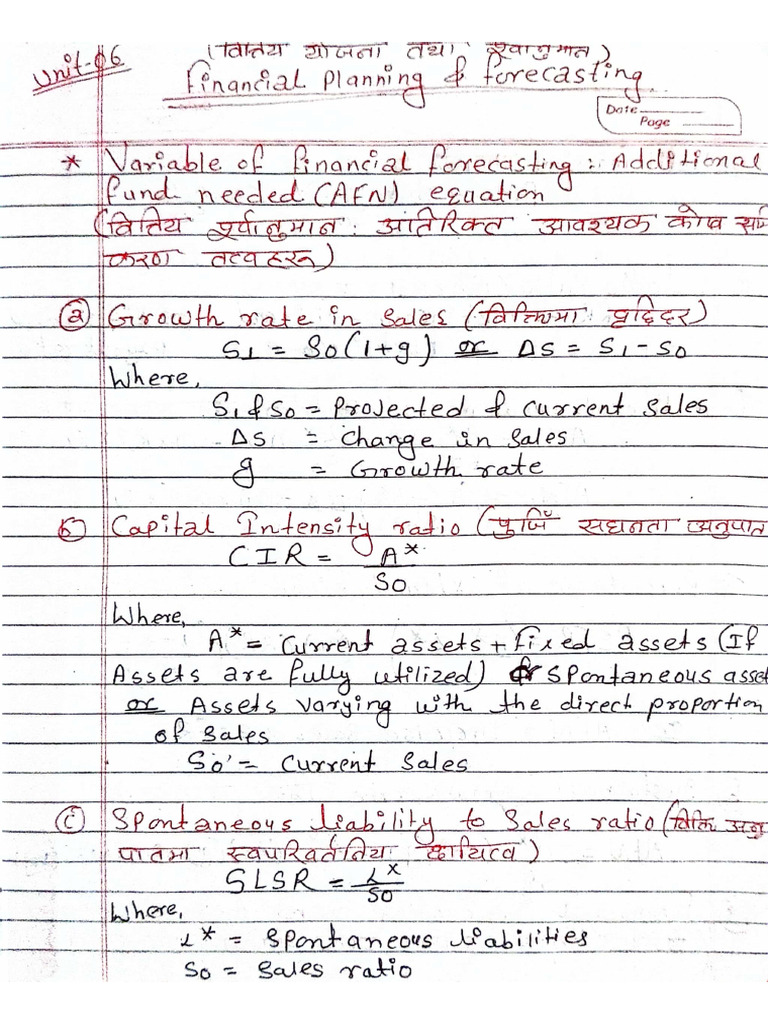 Unit-06
(वित्तिय योजना तथा पूर्वानुमान)
Financial Planning & forecasting
Date
Page
* Variable of financial forecasting: Additional
fund needed (AFN) equation
(वित्तिय पूर्वानुमान: अतिरिक्त आवश्यक कोष
करण तत्वहरू)
(a) Growth rate in sales (
S1 = S0(1+g) or ΔS = S1 - S0
Where,
S1 & S0 = Projected & current sales
ΔS = change in sales
g = Growth rate
(b) Capital Intensity ratio (पुँजि सघनता अनुपात
CIR = A*
S0
Where,
A* = Current assets + fixed assets (If
Assets are fully utilized) or spontaneous asset
or Assets varying with the direct proportion
of sales
S0 = Current sales
(c) Spontaneous liability to sales ratio (
पातमा
SLSR = L*
S0
Where,
L* = Spontaneous liabilities
S0 = Sales ratio